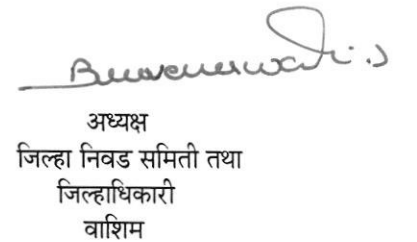 Buvaneswari.S
अध्यक्ष
जिल्हा निवड समिती तथा
जिल्हाधिकारी
वाशिम